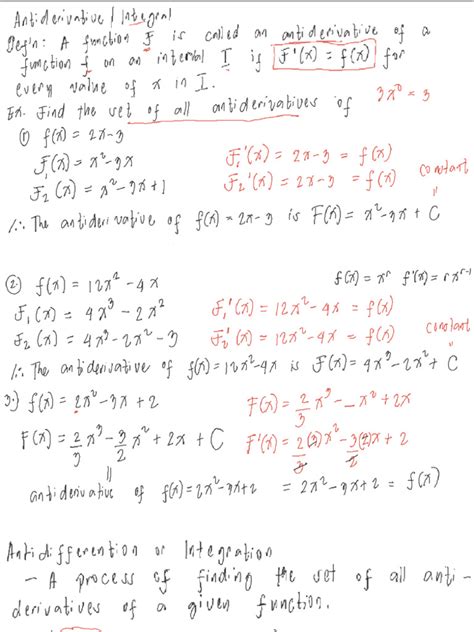 Antiderivative / Integral
Defin: A function F is called an antiderivative of a
function f on an interval I if F'(x) = f(x) for
every value of x in I.
Ex. Find the set of all antiderivatives of 3x⁰ = 3
① f(x) = 2x-3
F₁(x) = x²-3x F₁'(x) = 2x-3 = f(x)
F₂(x) = x²-3x+1 F₂'(x) = 2x-3 = f(x) constant
/∴ The antiderivative of f(x) = 2x-3 is F(x) = x²-3x + C
② f(x) = 12x² - 4x f(x) = xʳ f'(x) = rxʳ⁻¹
F₁(x) = 4x³ - 2x² F₁'(x) = 12x² - 4x = f(x)
F₂(x) = 4x³ - 2x² - 3 F₂'(x) = 12x² - 4x = f(x) constant
/∴ The antiderivative of f(x) = 12x²-4x is F(x) = 4x³ - 2x² + C
3.) f(x) = 2x² - 3x + 2 F(x) = 2/3 x³ - _ x² + 2x
F(x) = 2/3 x³ - 3/2 x² + 2x + C F'(x) = 2(3)/3 x² - 3(2)/2 x + 2
antiderivative of f(x) = 2x²-3x+2 = 2x² - 3x + 2 = f(x)
Antidifferention or Integration
- A process of finding the set of all anti-
derivatives of a given function.